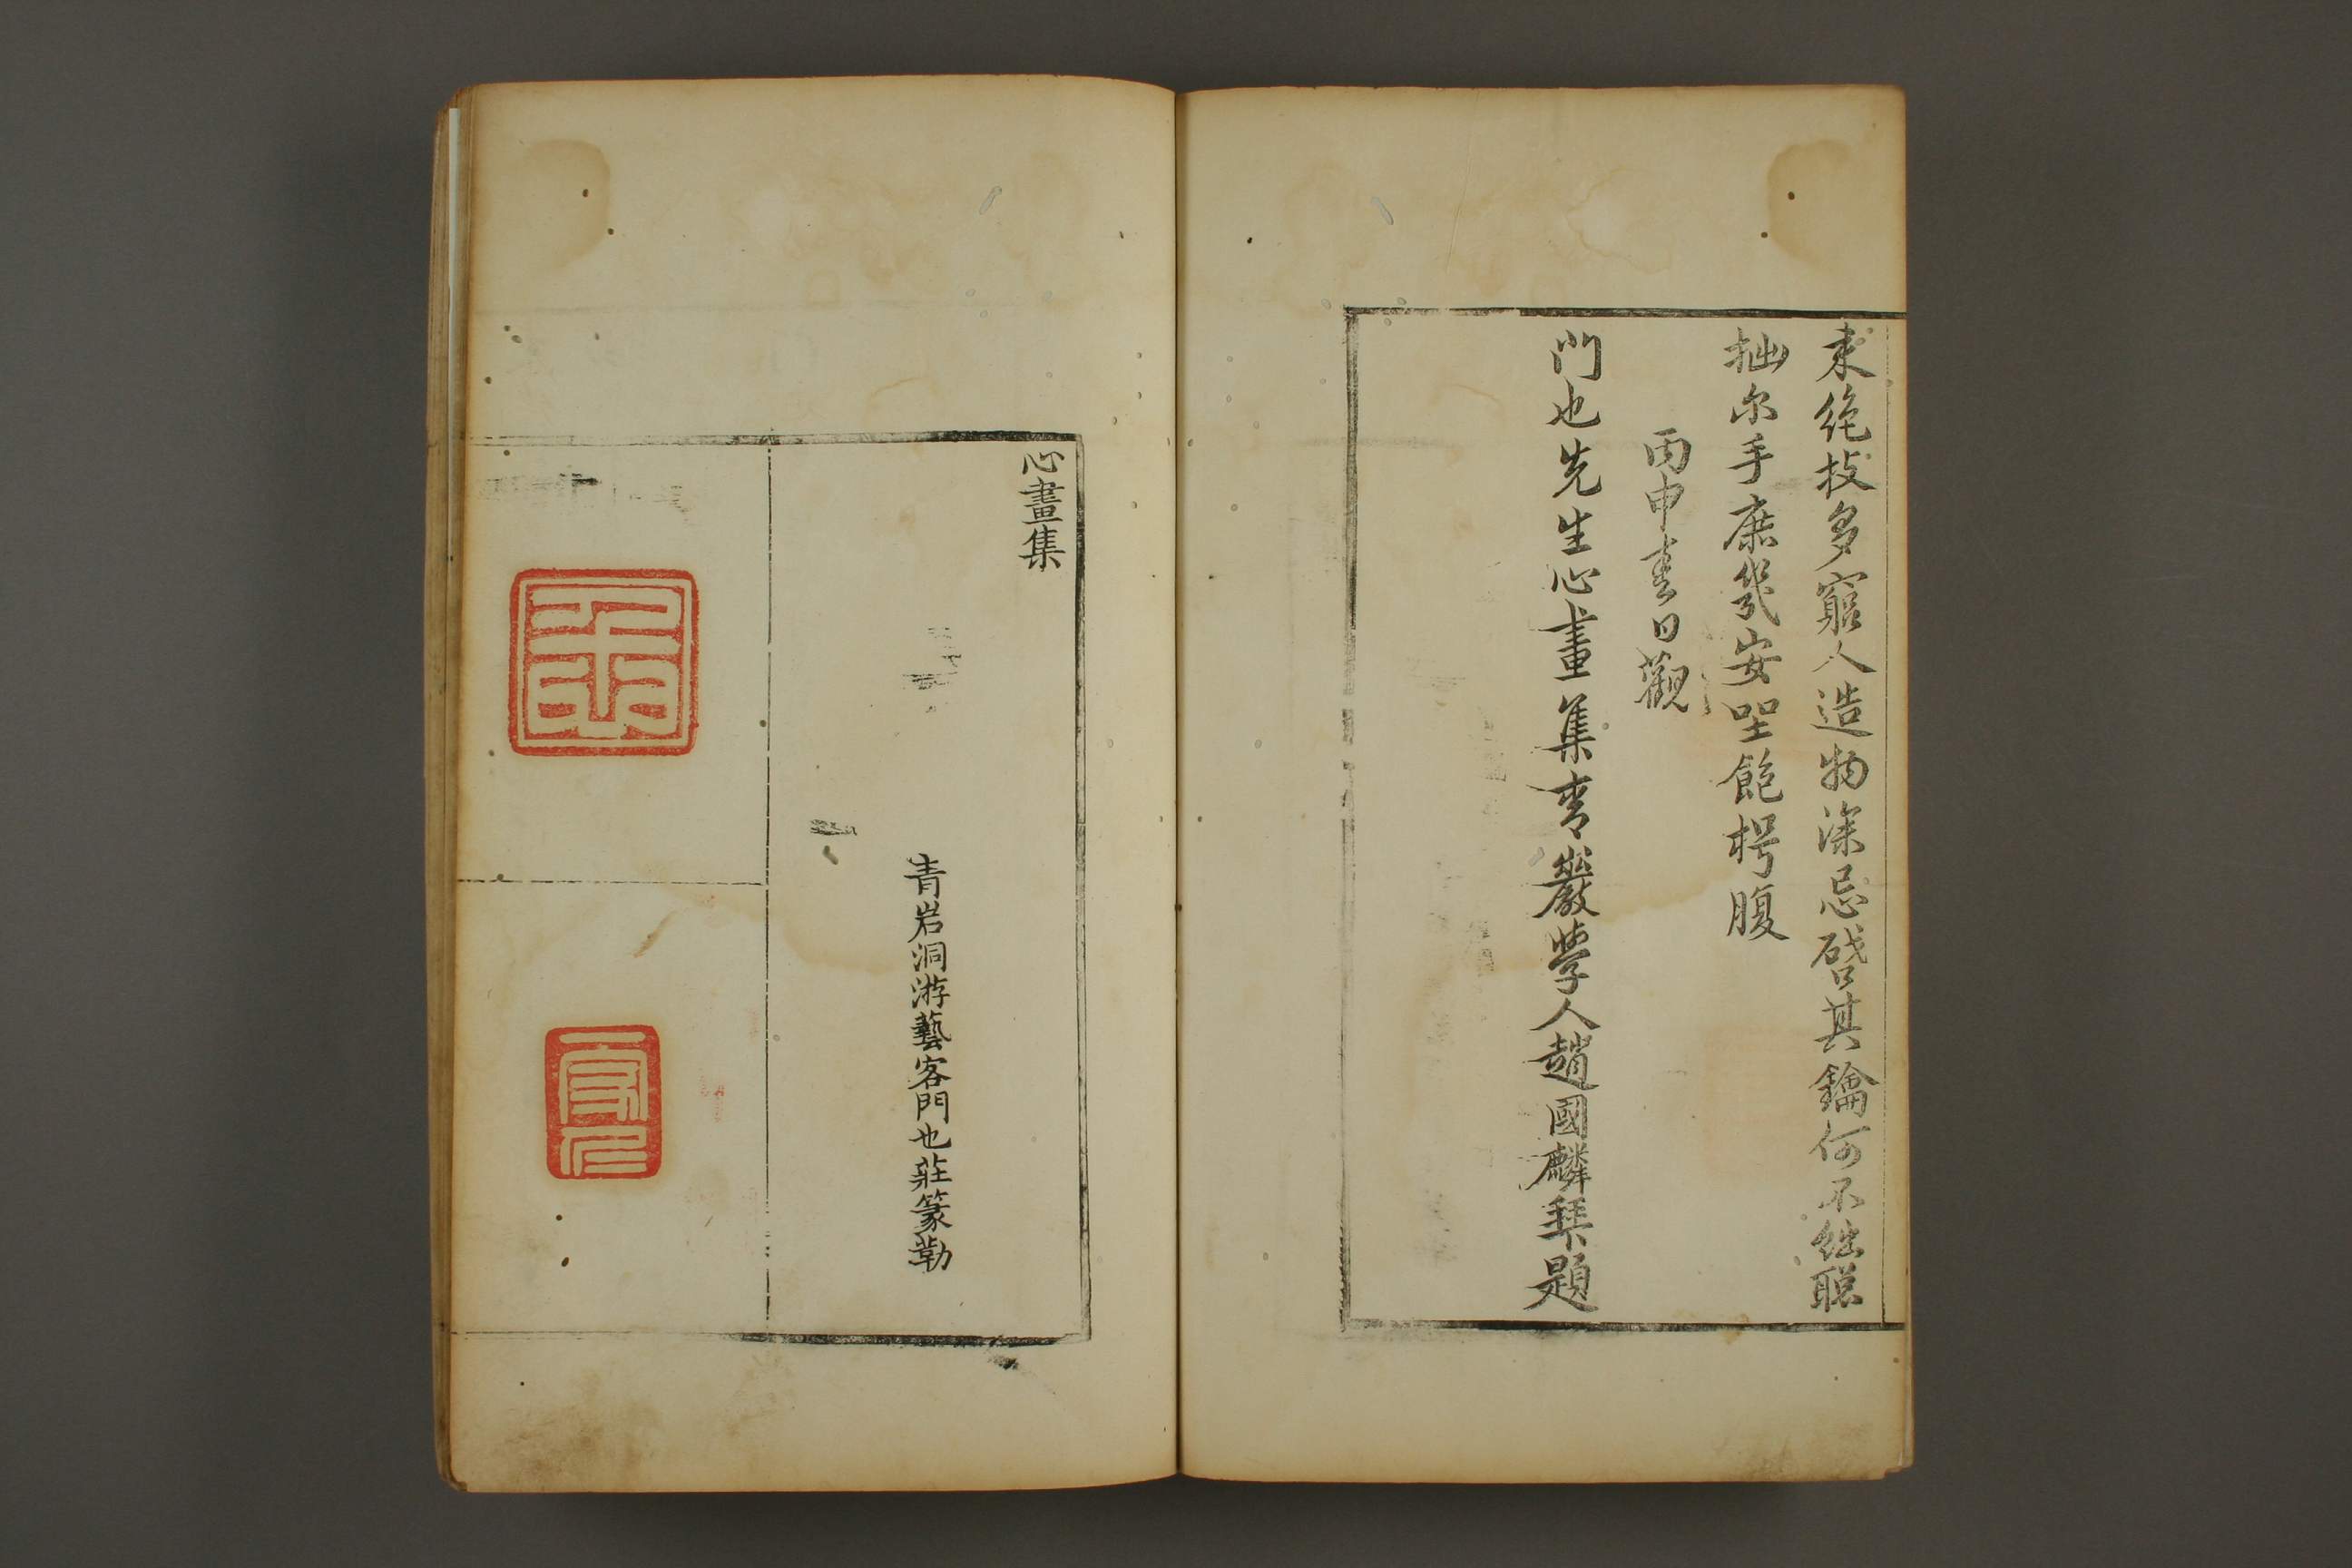 来絶技多窮人造物深忌啓其鑰何不絀聰
拙尔手庶幾安坐飽枵腹
丙申春日觀
門也先生心畫集青巖學人趙國麟拜題
心畫集
青岩洞游藝客門也莊篆勒